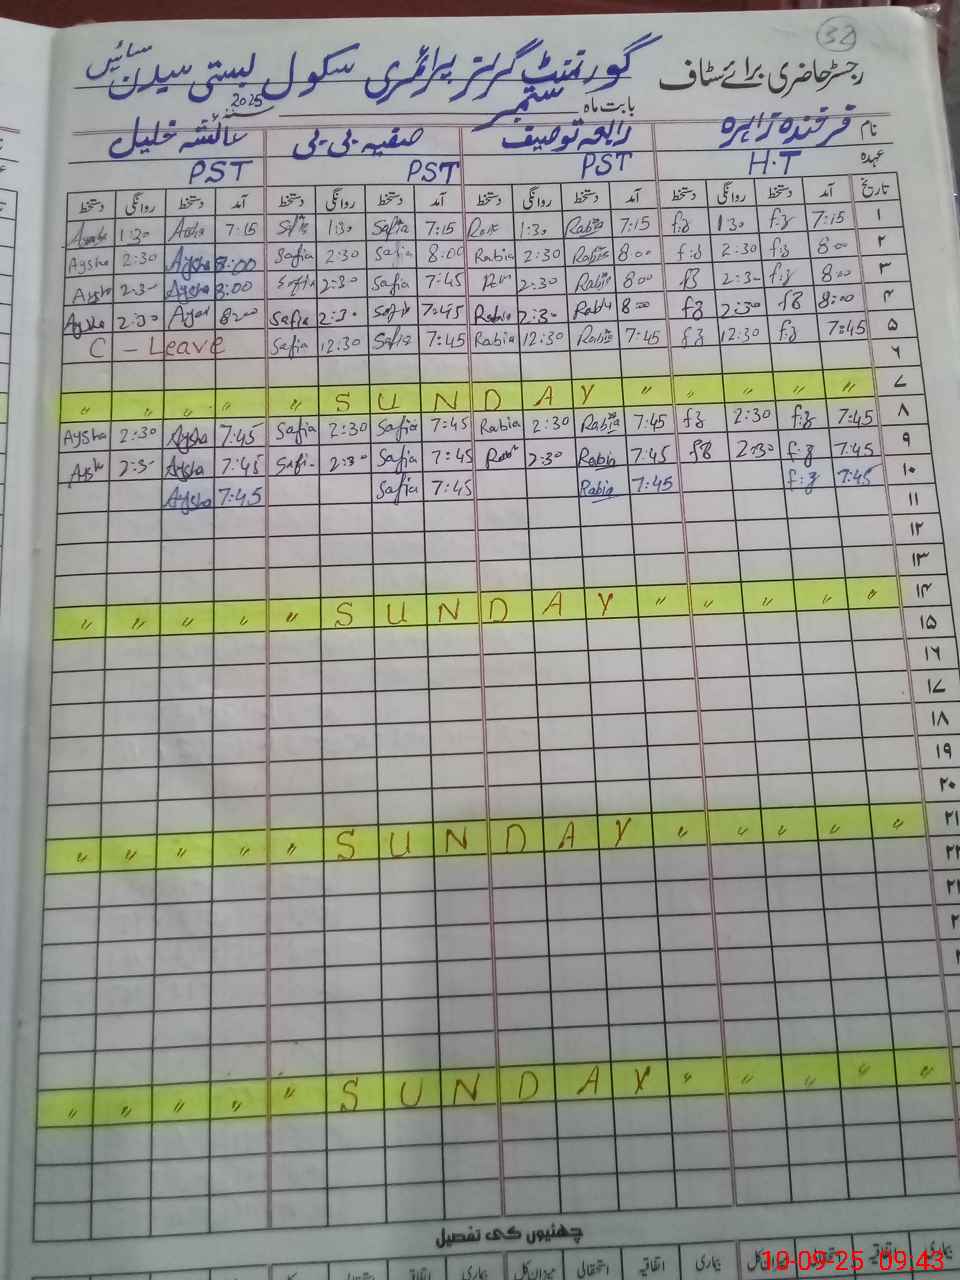 32
رجسٹر حاضری برائے سٹاف گورنمنٹ گرلز پرائمری سکول بستی سیدن سائیں
بابت ماہ ستمبر 2025
نام فرخندہ زاہرہ رابعہ توصیف صفیہ بی بی عائشہ خلیل
عہدہ H.T PST PST PST
تاریخ آمد دستخط روانگی دستخط آمد دستخط روانگی دستخط آمد دستخط روانگی دستخط آمد دستخط روانگی دستخط
۱ 7:15 f:z 1:30 f:z 7:15 Rabia 1:30 7:15 Safia 1:30 7:15 1:30
۲ 8:00 f:z 2:30 f:z 8:00 Rabia 2:30 Rabia 8:00 Safia 2:30 Safia 8:00 Aysha 2:30 Aysha
۳ 8:00 f:z 2:30 fz 8:00 Rabia 2:30 7:45 Safia 2:30 8:00 Aysha 2:30 Aysha
۴ 8:00 fz 2:30 fz 8:00 Rabia 2:30 Rabia 7:45 Safia 2:30 Safia 8:00 2:30 Aysha
۵ 7:45 f:z 12:30 f:z 7:45 Rabia 12:30 Rabia 7:45 Safia 12:30 Safia C - Leave
۶
۷ " " " " " SUNDAY " " " " "
۸ 7:45 f:z 2:30 f:z 7:45 Rabia 2:30 Rabia 7:45 Safia 2:30 Safia 7:45 Aysha 2:30 Aysha
۹ 7:45 f:z 2:30 fz 7:45 Rabia 2:30 7:45 Safia 2:30 7:45 Aysha 2:30
۱۰ 7:45 f:z 7:45 Rabia 7:45 Safia 7:45 Aysha
۱۱
۱۲
۱۳
۱۴ " " " " " SUNDAY " " " " "
۱۵
۱۶
۱۷
۱۸
۱۹
۲۰
۲۱ " " " " " SUNDAY " " " " "
۲۲
" " " " " SUNDAY " " " " "
چھٹیوں کی تفصیل
بیماری اتفاقیہ استحقاقی میزان کل بیماری اتفاقیہ استحقاقی میزان کل بیماری اتفاقیہ استحقاقی
10-09-25 09:43